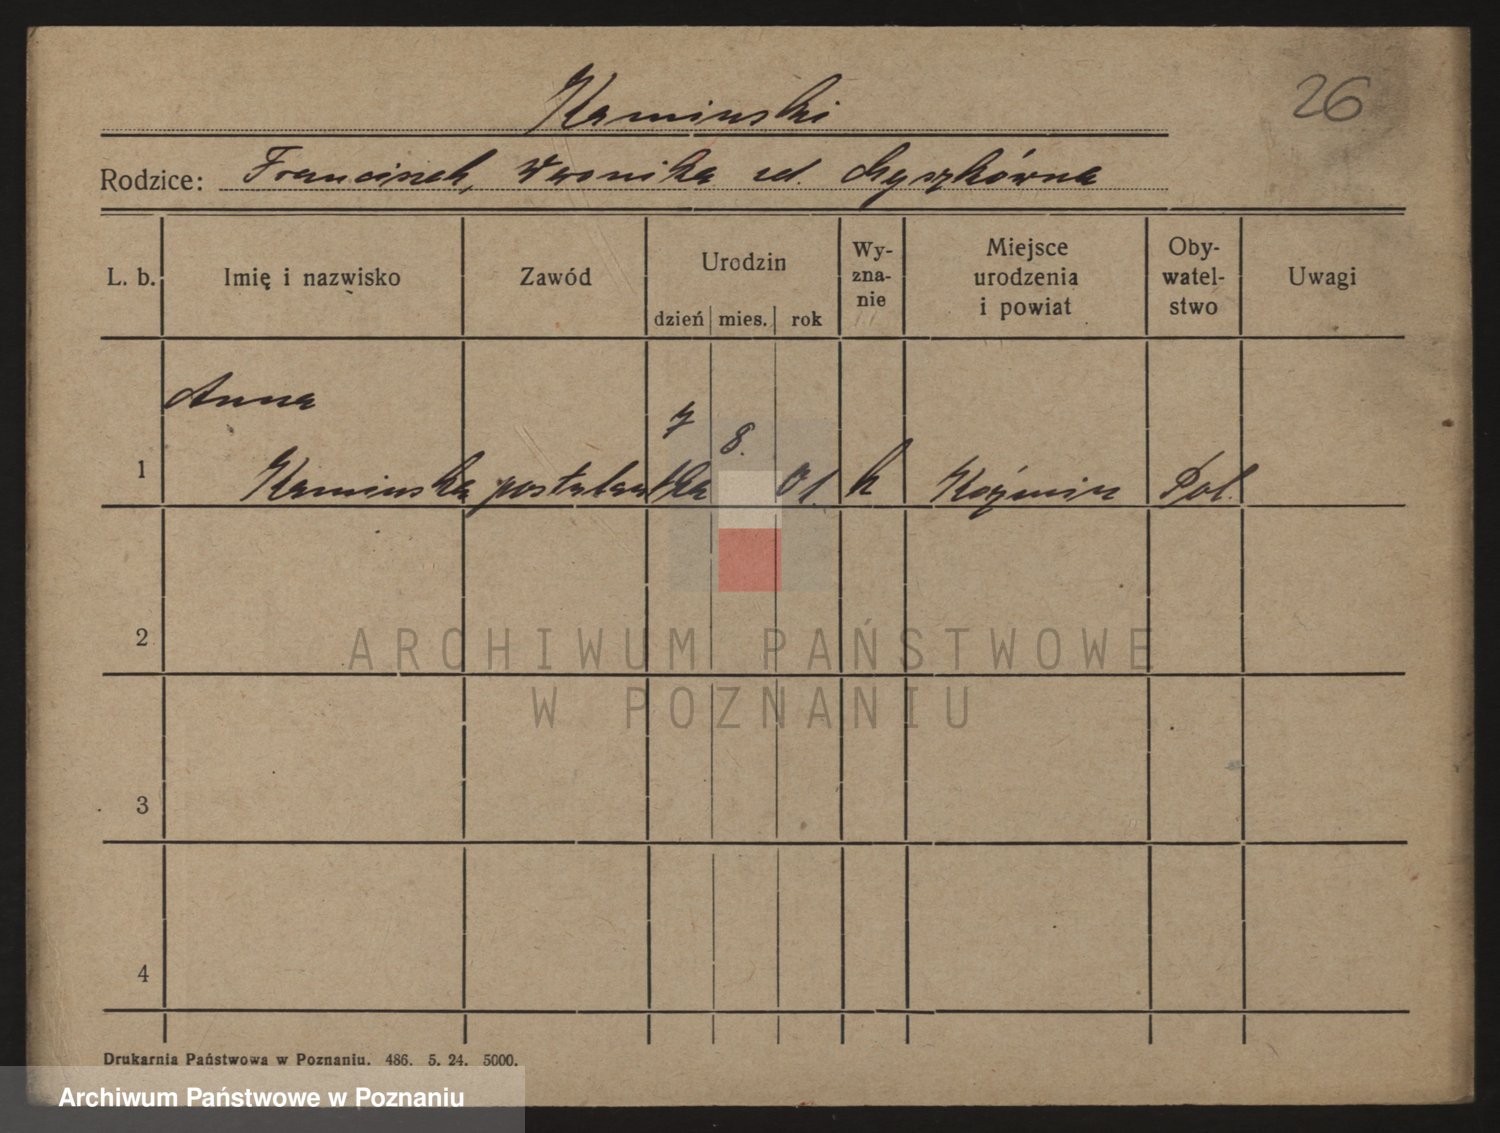 26
Kaminski
Rodzice: Franciszek, Weronika zd.
L. b. Imię i nazwisko Zawód Urodzin dzień mies. rok Wy-zna-nie Miejsce urodzenia i powiat Oby-watel-stwo Uwagi
Anna
7 8.
1 Kaminska postulantka 01. k Koźmin Pol.
2
3
4
ARCHIWUM PAŃSTWOWE
W POZNANIU
Drukarnia Państwowa w Poznaniu. 486. 5. 24. 5000.
Archiwum Państwowe w Poznaniu